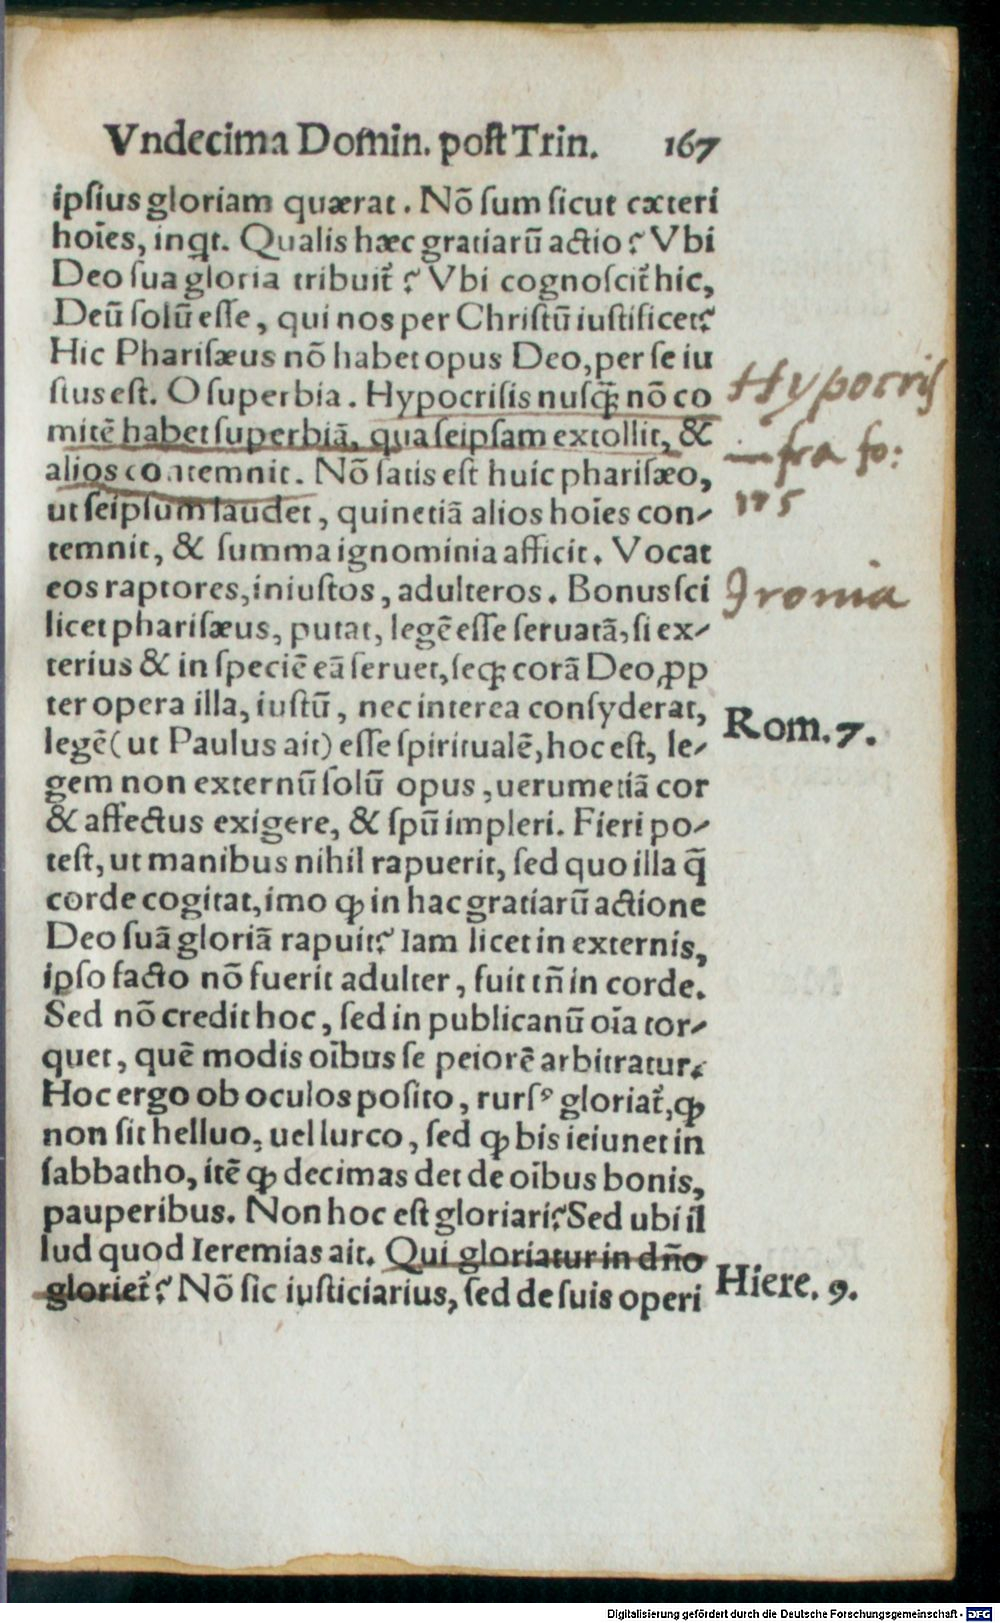 Vndecima Domin. post Trin. 167
ipsius gloriam quærat. Nõ sum sicut cæteri
hoĩes, inqt. Qualis hæc gratiarũ actio? Vbi
Deo sua gloria tribuit᷑? Vbi cognoscit᷑ hic,
Deũ solũ esse, qui nos per Christũ iustificet?
Hic Pharisæus nõ habet opus Deo, per se iu
stus est. O superbia. Hypocrisis nusꝗ̃ nõ co
mitẽ habet superbiã, qua seipsam extollit, &
alios contemnit. Nõ satis est huic pharisæo,
ut seipsum laudet, quinetiã alios hoĩes con-
temnit, & summa ignominia afficit. Vocat
eos raptores, iniustos, adulteros. Bonus sci
licet pharisæus, putat, legẽ esse seruatã, si ex-
terius & in speciẽ eã seruet, seq; corã Deo, ꝓp
ter opera illa, iustũ, nec interea consyderat,
legẽ (ut Paulus ait) esse spiritualẽ, hoc est, le-
gem non externũ solũ opus, uerumetiã cor
& affectus exigere, & spũ impleri. Fieri po-
test, ut manibus nihil rapuerit, sed quo illa q̃
corde cogitat, imo ꝙ in hac gratiarũ actione
Deo suã gloriã rapuit? Iam licet in externis,
ipso facto nõ fuerit adulter, fuit tñ in corde.
Sed nõ credit hoc, sed in publicanũ oĩa tor-
quet, quẽ modis oĩbus se peiorẽ arbitratur.
Hoc ergo ob oculos posito, rursꝰ gloriat᷑, ꝙ
non sit helluo, uel lurco, sed ꝙ bis ieiunet in
sabbatho, itẽ ꝙ decimas det de oĩbus bonis,
pauperibus. Non hoc est gloriari? Sed ubi il
lud quod Ieremias ait. Qui gloriatur in dño
gloriet᷑? Nõ sic iusticiarius, sed de suis operi
Hypocris
infra fo:
175
Ironia
Rom. 7.
Hiere. 9.
Digitalisierung gefördert durch die Deutsche Forschungsgemeinschaft - DFG